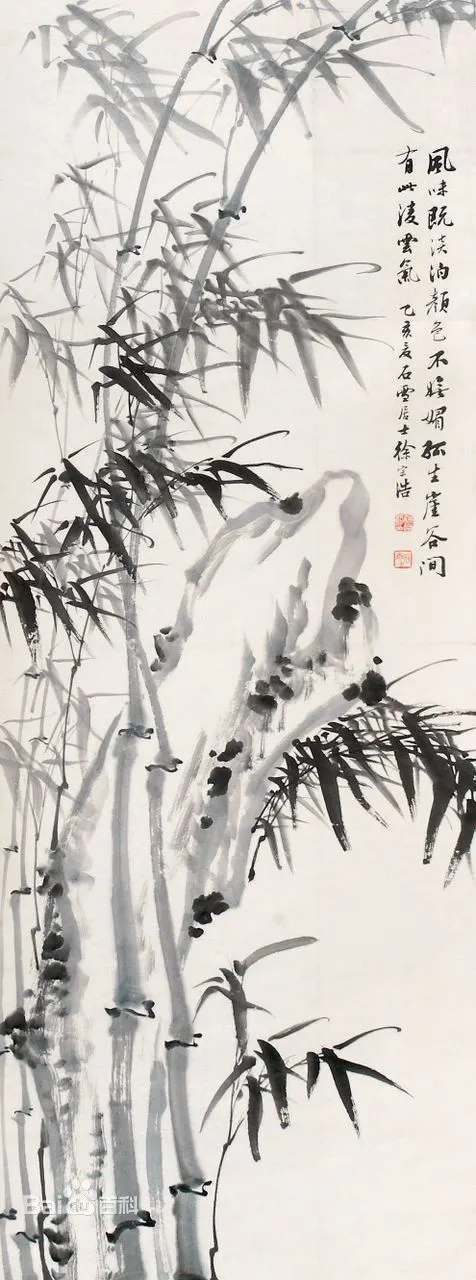 風味既淡泊顏色不嫵媚孤生崖谷間
有此凌雲氣 乙亥夏石雪居士徐宗浩
Baidu百科